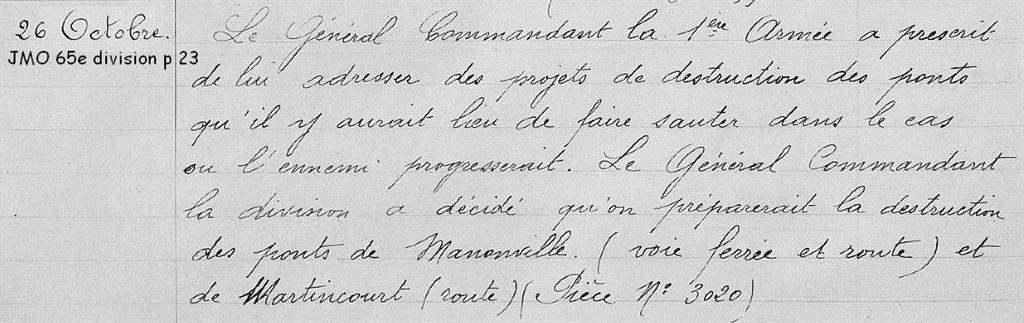 26 Octobre.
JMO 65e division p 23
Le Général Commandant la 1ère Armée a prescrit
de lui adresser des projets de destruction des ponts
qu'il y aurait lieu de faire sauter dans le cas
ou l'ennemi progresserait. Le Général Commandant
la division a décidé qu'on préparerait la destruction
des ponts de Manonville. (voie ferrée et route) et
de Martincourt (route) (Pièce N° 3020)